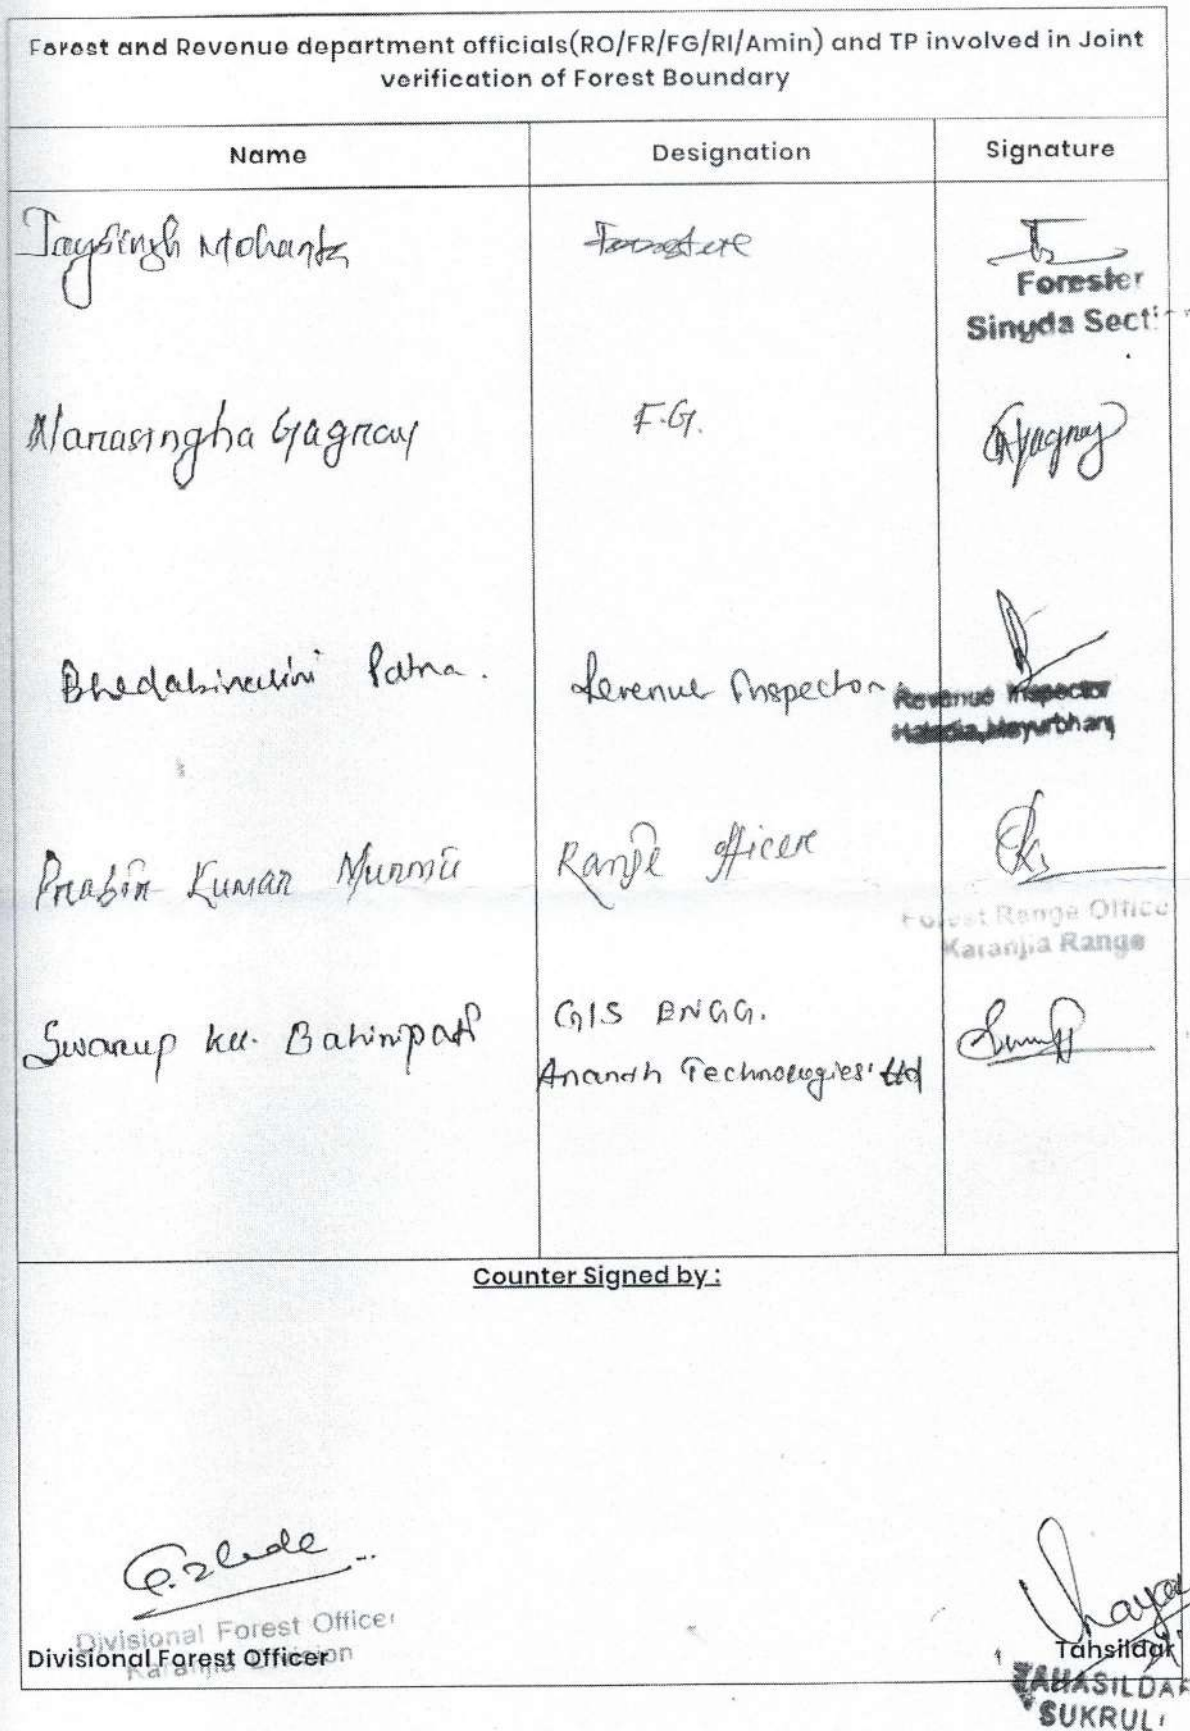 Forest and Revenue department officials(RO/FR/FG/RI/Amin) and TP involved in Joint
verification of Forest Boundary
Name Designation Signature
Jaysingh Mohanta
Forester
Sinuda Secti
Narasingha Gagray F.G. Gagray
Patra. Revenue Inspector
Revenue Inspector
Haladia, Mayurbhanj
Prabin Kumar Murmu Range officer
Forest Range Office
Karanjia Range
Swarup ku. Bahinipati GIS ENGG.
Ananth Technologies Ltd
Counter Signed by :
Divisional Forest Officer
Karanjia Division
Divisional Forest Officer
Tahsildar
TAHASILDAR
SUKRULI